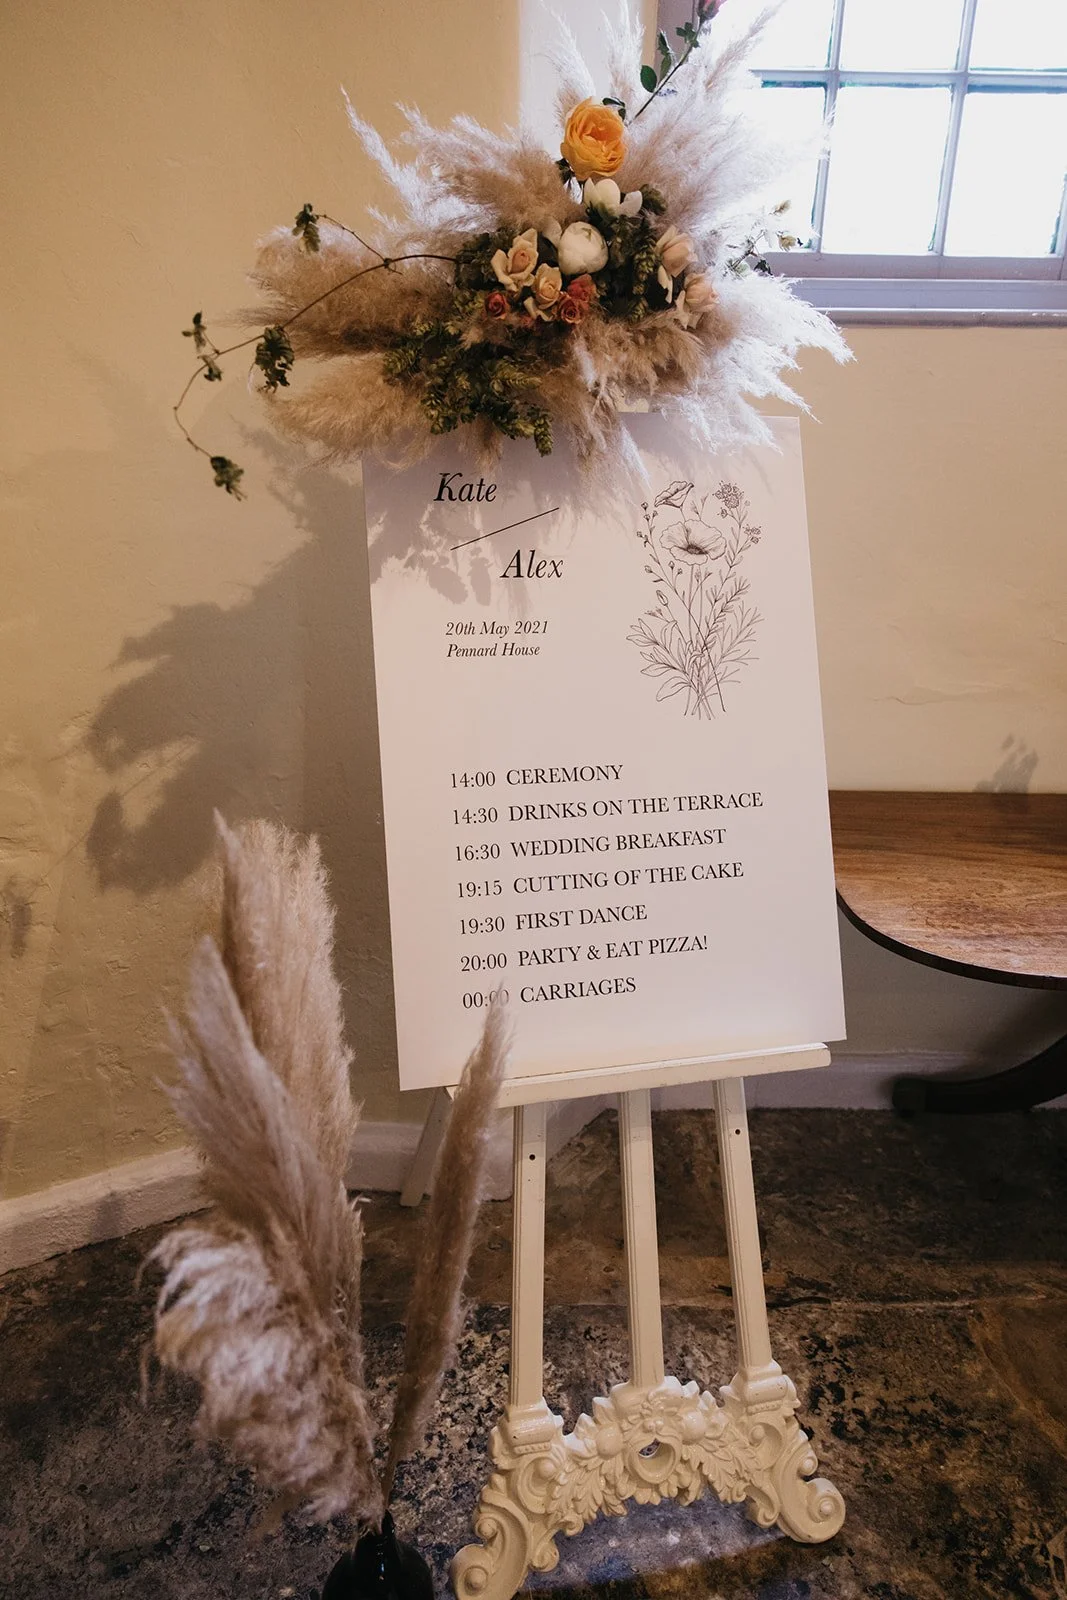 Kate
Alex
20th May 2021
Pennard House
14:00 CEREMONY
14:30 DRINKS ON THE TERRACE
16:30 WEDDING BREAKFAST
19:15 CUTTING OF THE CAKE
19:30 FIRST DANCE
20:00 PARTY & EAT PIZZA!
00:00 CARRIAGES